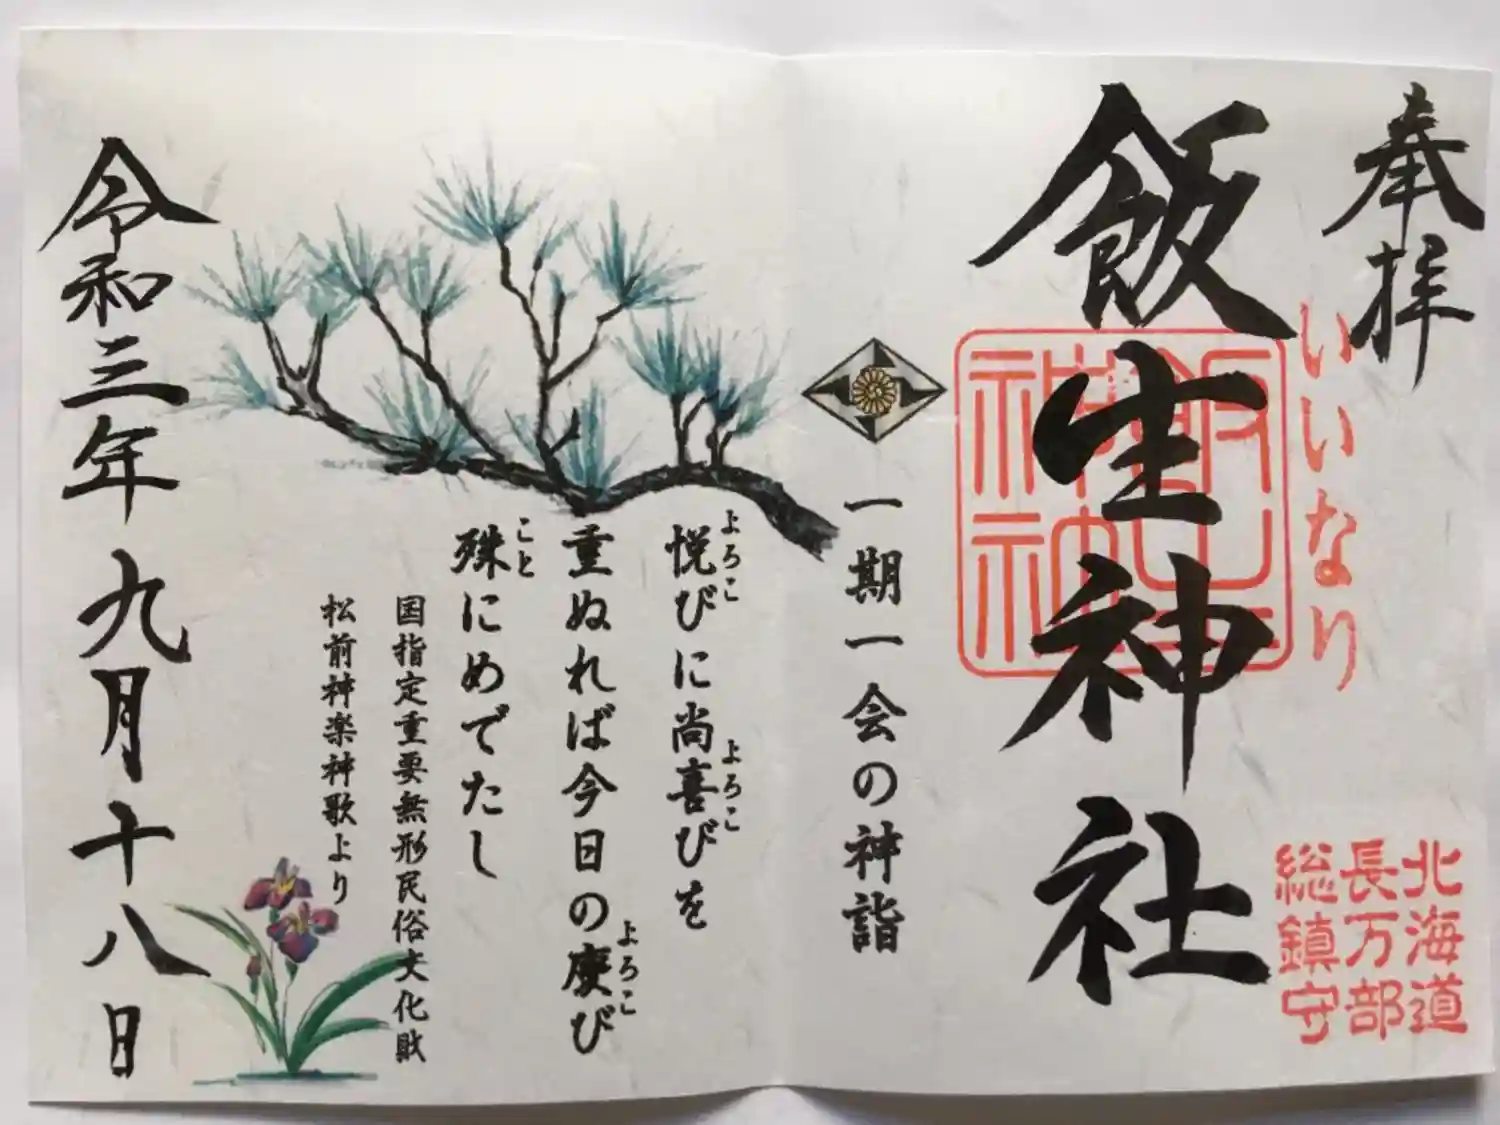 奉拝
いいなり
飯生神社
飯生神社
北海道
長万部
総鎮守
一期一会の神詣
悦びに尚喜びを
よろこ
よろこ
重ぬれば今日の慶び
よろこ
殊にめでたし
こと
国指定重要無形民俗文化財
松前神楽神歌より
令和三年九月十八日